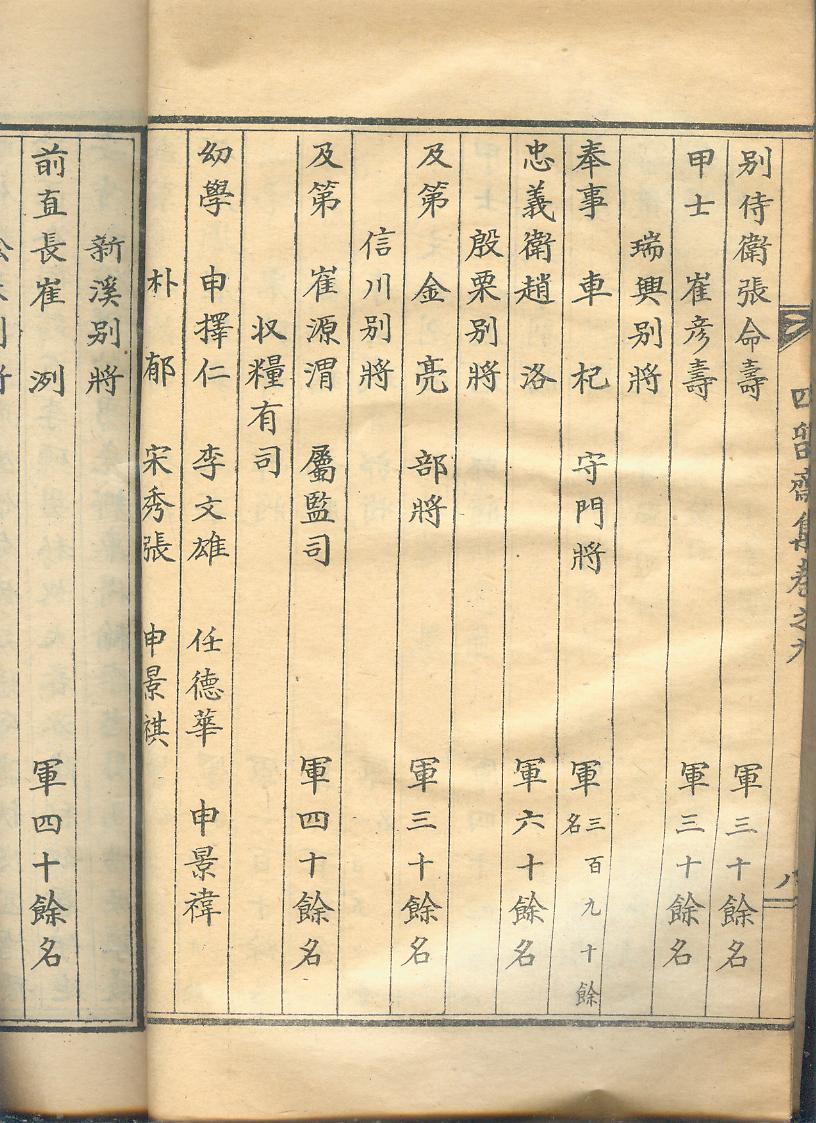 四留齋集卷之六
八
別侍衛張命壽 軍三十餘名
甲士 崔彦壽 軍三十餘名
瑞興別將
奉事 車 杞 守門將 軍三百九十餘名
忠義衛趙 洛 軍六十餘名
殷栗別將
及第 金 亮 部將 軍三十餘名
信川別將
及第 崔源渭 屬監司 軍四十餘名
收糧有司
幼學 申擇仁 李文雄 任德華 申景禕
朴 郁 宋秀張 申景祺
新溪別將
前直長崔 洌 軍四十餘名